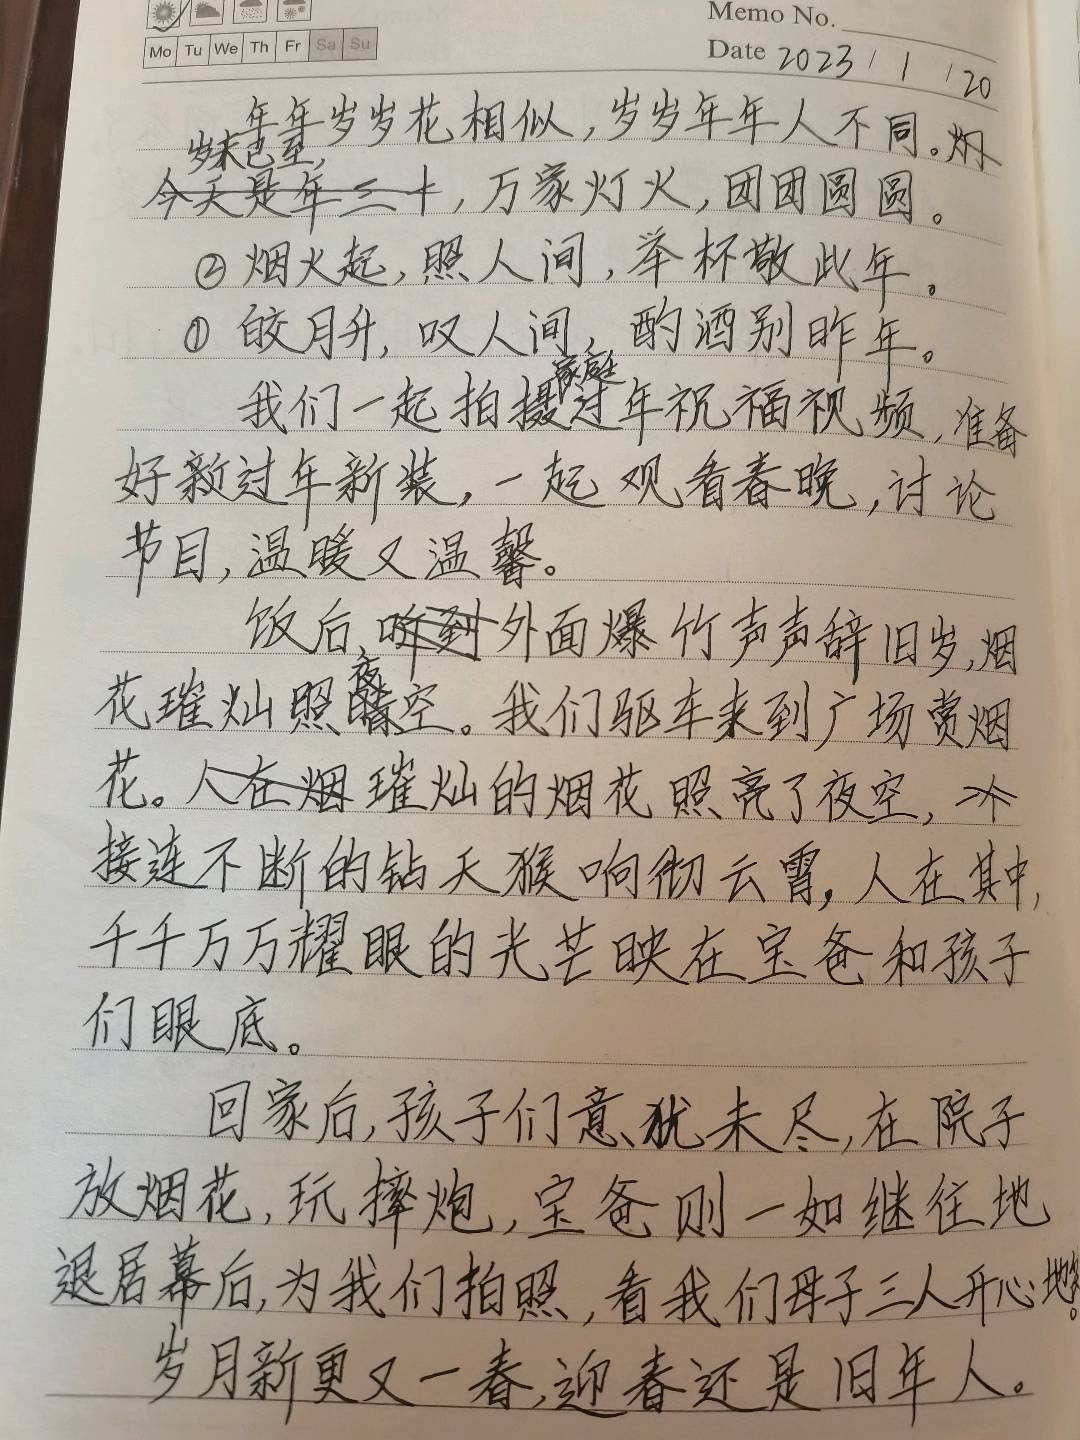 Memo No.
Mo Tu We Th Fr Sa Su
Date 2023 / 1 / 20
年年岁岁花相似,岁岁年年人不同。炉
岁末已至,
今天是年三十,万家灯火,团团圆圆。
②烟火起,照人间,举杯敬此年。
①皎月升,叹人间,酌酒别昨年。
家庭
我们一起拍摄过年祝福视频,准备
好新过年新装,一起观看春晚,讨论
节目,温暖又温馨。
饭后,听到外面爆竹声声辞旧岁,烟
夜
花璀灿照暗空。我们驱车来到广场赏烟
花。人在烟璀灿的烟花照亮了夜空,
接连不断的钻天猴响彻云霄,人在其中,
千千万万耀眼的光芒映在宝爸和孩子
们眼底。
回家后,孩子们意犹未尽,在院子
放烟花,玩摔炮,宝爸则一如继往地
退居幕后,为我们拍照,看我们母子三人开心地笑。
岁月新更又一春,迎春还是旧年人。